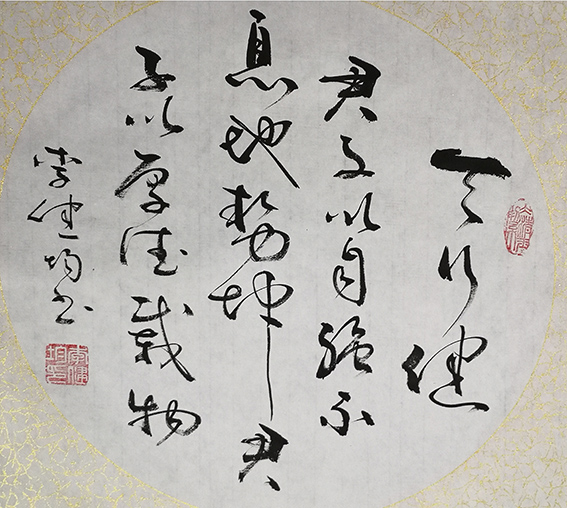 天行健
君子以自强不
息地势坤君
子以厚德载物
李健均书